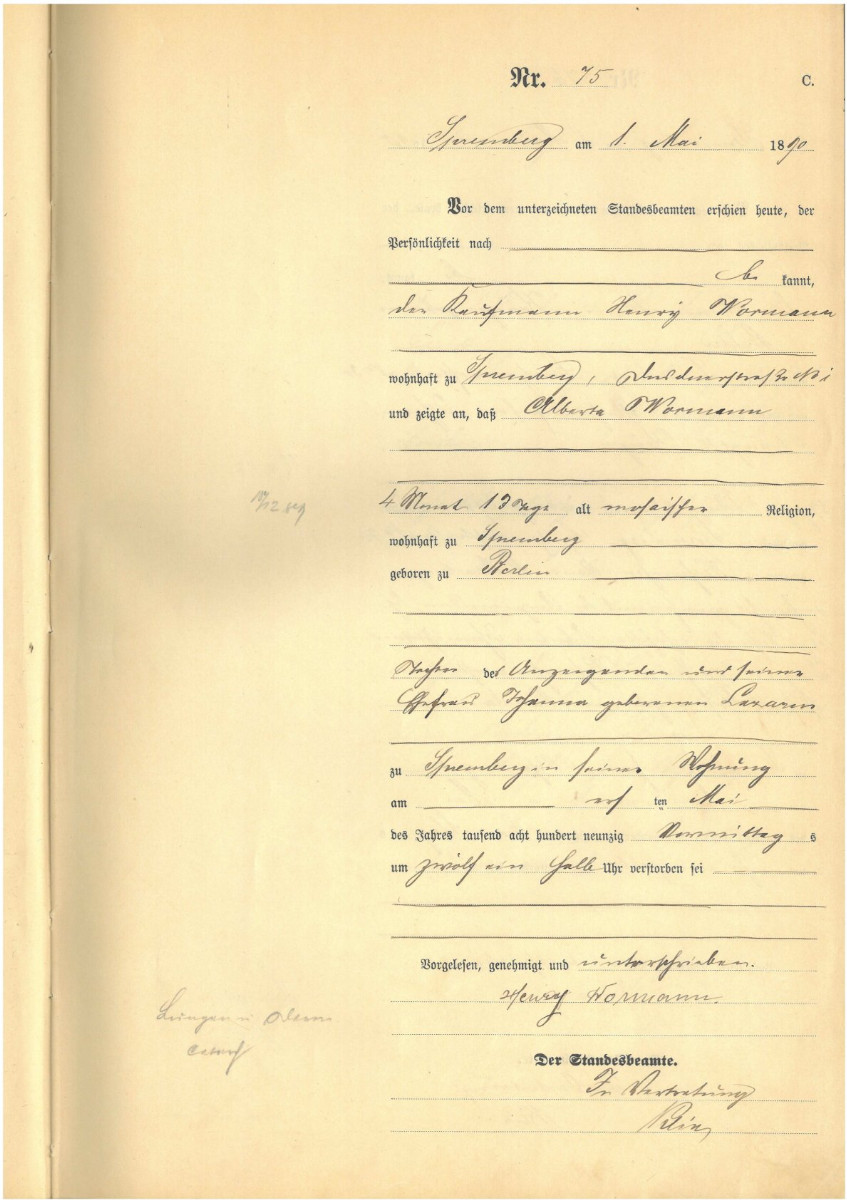 Nr. 75 C.
Spremberg am 1. Mai 1890
Vor dem unterzeichneten Standesbeamten erschien heute, der
Persönlichkeit nach
be kannt,
der Kaufmann Henry Wormann
wohnhaft zu Spremberg, Dresdenerstraße No 1
und zeigte an, daß Alberta Wormann
4 Monat 13 Tage alt mosaischer Religion,
wohnhaft zu Spremberg
geboren zu Berlin
Tochter des Anzeigenden und seiner
Ehefrau Johanna geborenen Lazarus
zu Spremberg in seiner Wohnung
am ersten Mai
des Jahres tausend acht hundert neunzig Vormittags
um zwölf ein halb Uhr verstorben sei
Vorgelesen, genehmigt und unterschrieben.
Henry Wormann.
Lungen u Darm
Der Standesbeamte.
In Vertretung